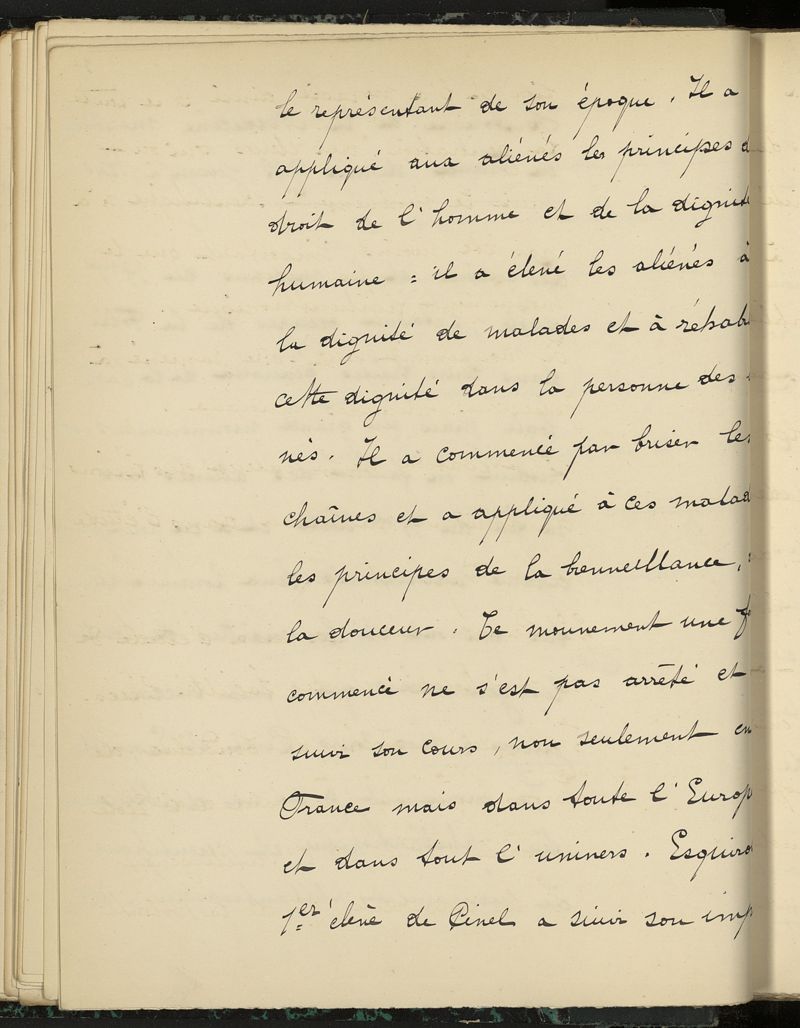 le représentant de son époque. Il a
appliqué aux aliénés les principes d
droit de l'homme et de la dignité
humaine : il a élevé les aliénés à
la dignité de malades et à réhab
cette dignité dans la personne des
nés. Il a commencé par briser les
chaînes et a appliqué à ces malad
les principes de la bienveillance,
la douceur. Ce mouvement une f
commencé ne s'est pas arrêté et
suivi son cours, non seulement en
France mais dans toute l'Europ
et dans tout l'univers. Esquiro
1er élève de Pinel a suivi son imp